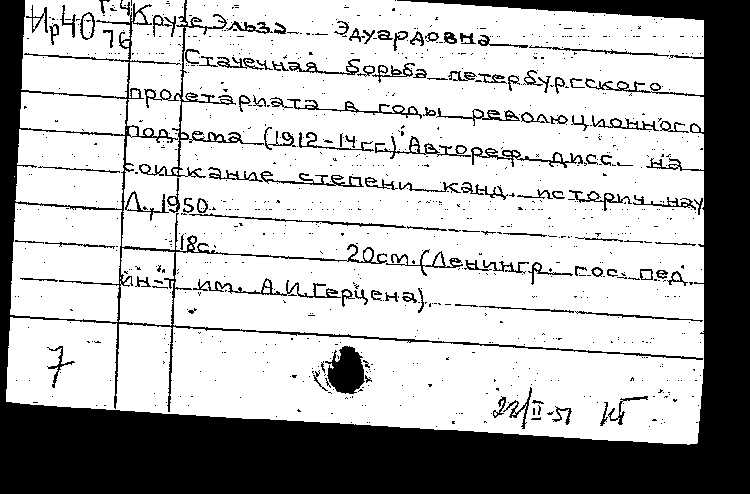 Ир40 Г-4/76 Крузе, Эльза Эдуардовна
Стачечная борьба петербургского
пролетариата в годы революционного
подъема (1912-14гг.) Автореф. дисс. на
соискание степени канд. историч. нау
Л., 1950.
18с. 20см. (Ленингр. гос. пед.
ин-т им. А.И.Герцена).
7
22/II-51 КГ